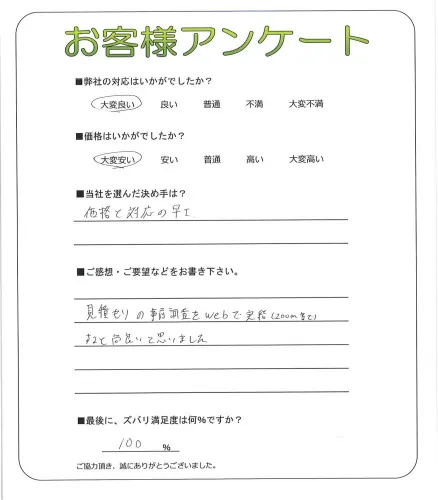 お客様アンケート
■弊社の対応はいかがでしたか？
大変良い 良い 普通 不満 大変不満
■価格はいかがでしたか？
大変安い 安い 普通 高い 大変高い
■当社を選んだ決め手は？
価格と対応の早さ
■ご感想・ご要望などをお書き下さい。
見積もりの事前調査をwebで実施(zoom等で)
すると尚良いと思いました
■最後に、ズバリ満足度は何%ですか？
100 %
ご協力頂き、誠にありがとうございました。